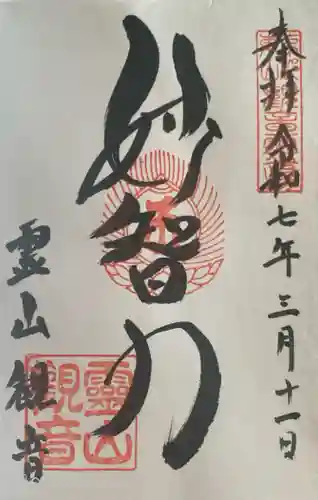 奉拝 令和七年三月十一日
妙智力
霊山観音
靈山
観音